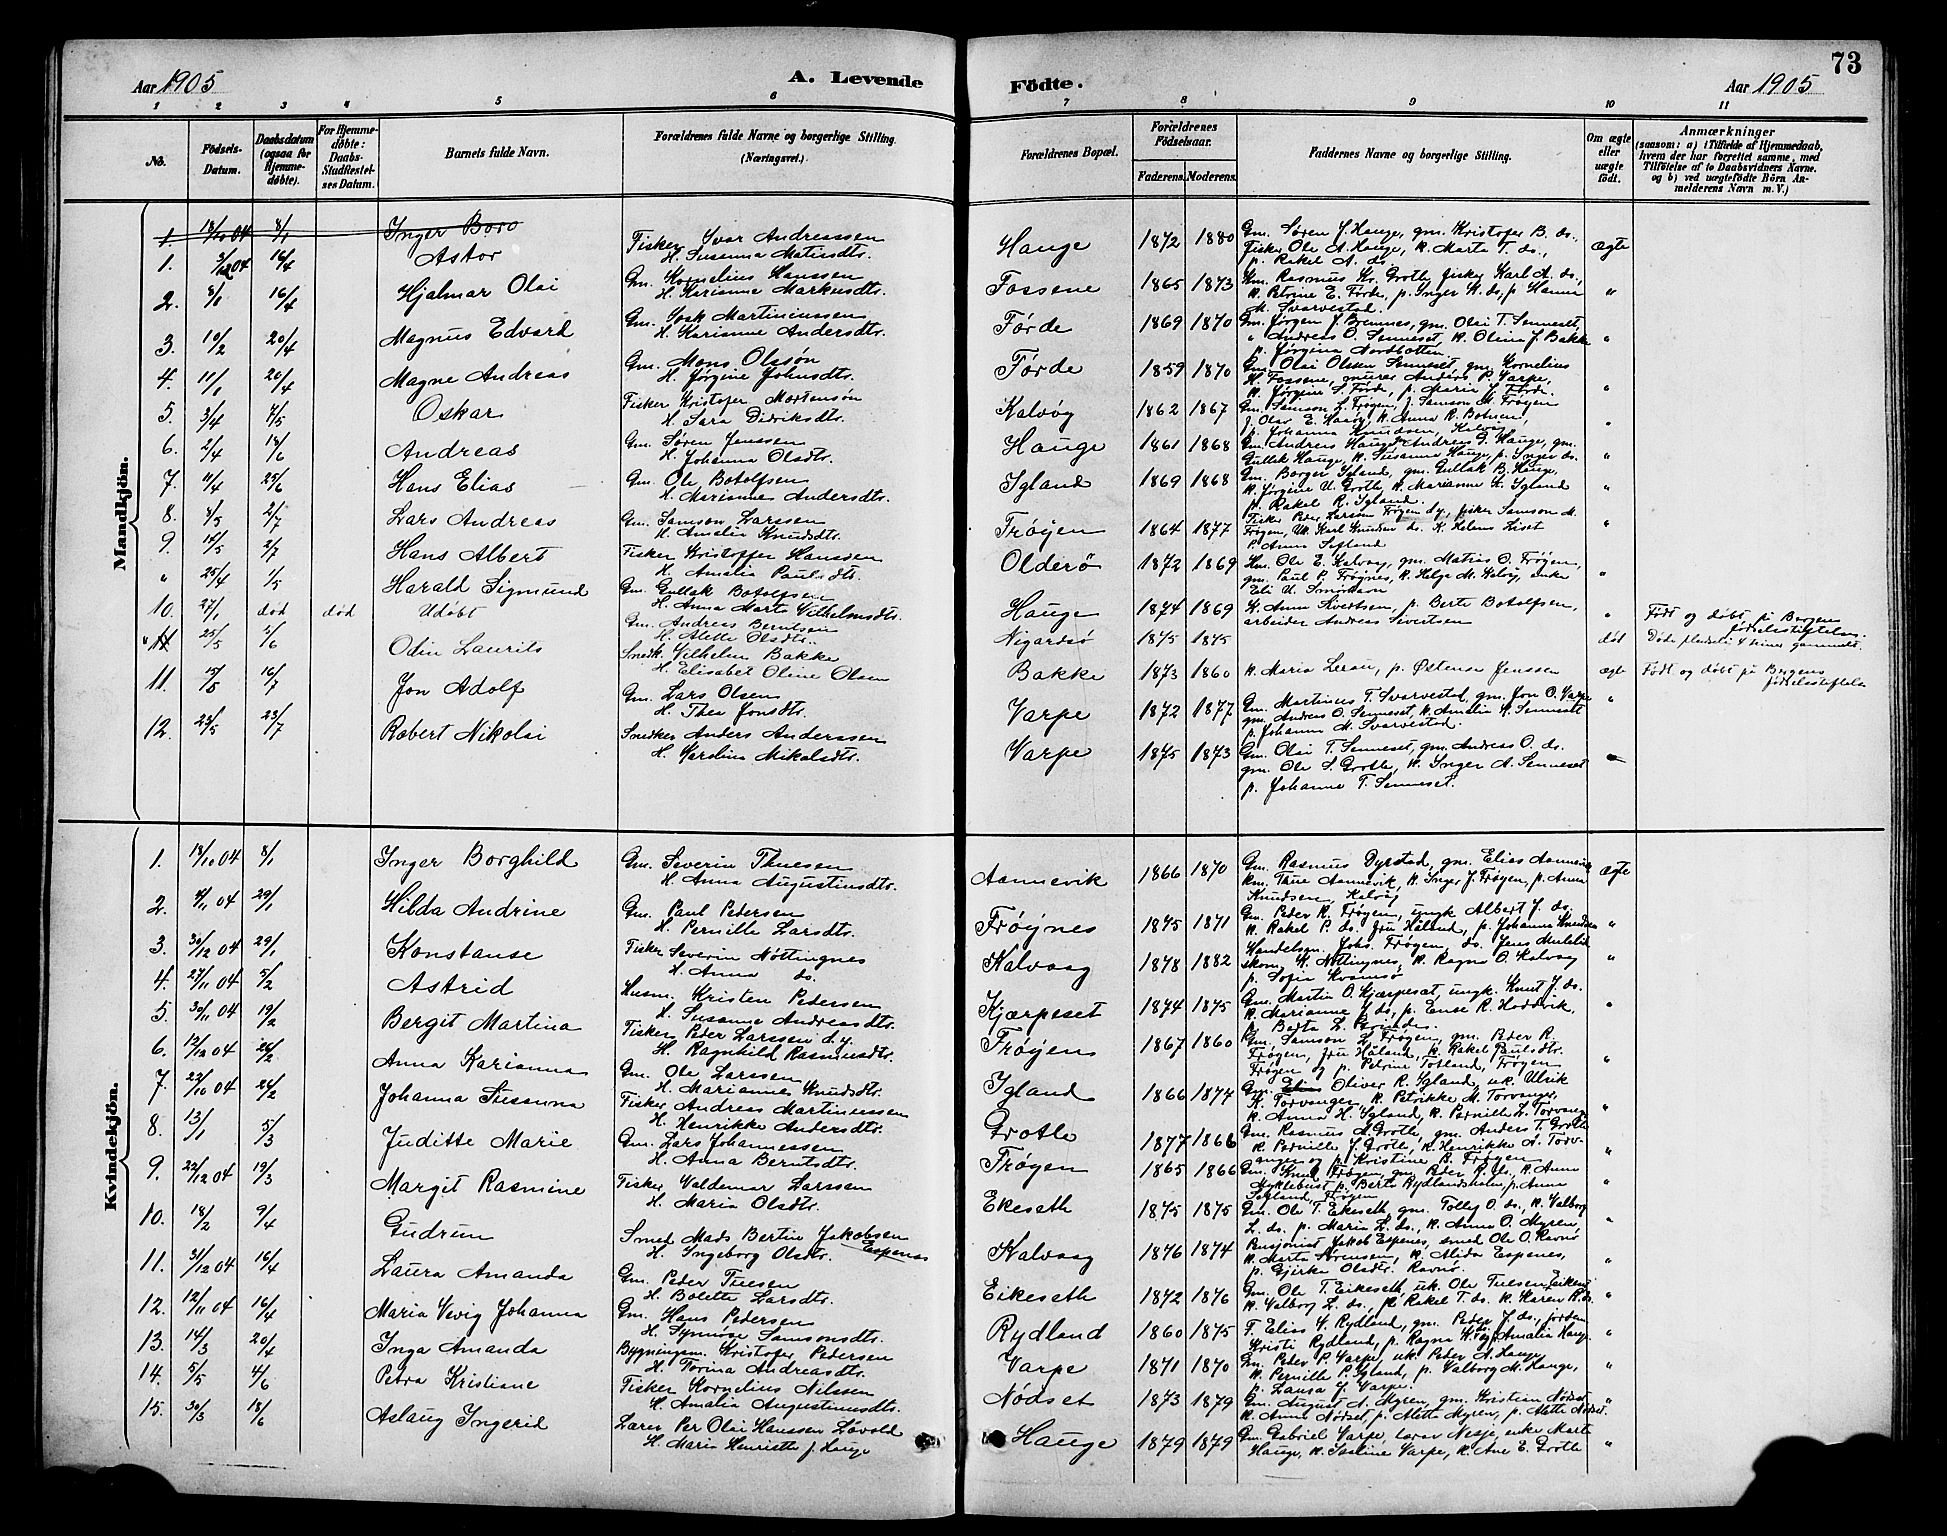 73
Aar 1905
A. Levende
Födte.
Aar 1905
1 2 3 4 5 6 7 8 9 10 11
No.
Födsels-Datum.
Daabsdatum (ogsaa for Hjemme-døbte).
For Hjemme-døbte: Daabs-Stadfæstel-ses Datum.
Barnets fulde Navn.
Forældrenes fulde Navne og borgerlige Stilling. (Næringsvei.)
Forældrenes Bopæl.
Forældrenes Födselsaar.
Faderens. Moderens.
Faddernes Navne og borgerlige Stilling.
Om ægte eller uægte födt.
Anmærkninger
(saasom: a) i Tilfælde af Hjemmedaab, hvem der har forrettet samme, med Tilföielse af to Daabsvidners Navne. og b) ved uægtefödte Börn Anmelderens Navn m. V.)
Mandkjön.
1. 18/10 04 8/1 Inger Boro
1. 3/12 04 16/4 Astor Fisker Ivar Andreassen H. Susanna Matiasdtr. Hauge 1872 1880 Gm. Søren J. Hauge, gm. Kristofer B. ds., Fisker Ole A. Hauge, k. Marta T. ds., p. Rakel A. ds. ægte
2. 8/1 16/4 Hjalmar Olai Gm. Kornelius Hanssen H. Karianne Markusdtr. Fossene 1865 1873 Gm. Rasmus Kr. Grotle, fisker Karl A. ds, k. Petrine E. Førde, p. Inger K. ds, p. Hanna M. Svarvestad. "
3. 10/2 20/4 Magnus Edvard Gm. Isak Martiniussen H. Karianne Andersdtr. Førde 1869 1870 Gm. Jørgen J. Bremnes, gm. Olai T. Senneset, " Andreas O. Senneset, k. Olina J. Bakke p. Jørgina Nordbotten "
4. 11/1 20/4 Magne Andreas Gm. Mons Olssøn H. Jørgine Johnsdtr. Førde 1859 1870 Gm. Olai Olsen Senneset, gm. Kornelius H. Fossene, murer Anders P. Varpe, k. Jørgine S. Førde, p. Maria J. Førde. "
5. 3/4 7/5 Oskar Fisker Kristofer Mortensøn H. Sara Didriksdtr. Kalvøg 1862 1867 Gm. Samson L. Frøyen, J. Samson M. Frøyen J. Olav E. Haaøy, k. Anna R. Botnen, p. Johanna Knudsen, Kalvøg "
6. 2/4 18/6 Andreas Gm. Søren Jenssen H. Johanna Olsdtr. Hauge 1861 1868 Gm. Andreas Hauge, Andreas G. Hauge, gm. Gullak Hauge, k. Susanna Hauge, p. Inger ds. "
7. 11/4 25/6 Hans Elias Gm. Ole Botolfsen H. Marianne Andersdtr. Igland 1869 1868 Gm. Borger Igland, gm. Gullak B. Hauge, k. Jørgine U. Grotle, k. Marianne K. Igland p. Rakel R. Igland. "
8. 8/5 2/7 Lars Andreas Gm. Samson Larssen H. Amalia Knudsdtr. Frøyen 1864 1877 Fisker Peder Larsen Frøyen d.y., fisker Samson M. Frøyen, Uk. Karl Knudsen ds. K. Helene Liset P. Anna Sætland "
9. 15/5 2/7 Hans Albert Fisker Kristoffer Hanssen H. Amalia Paulsdtr. Olderø 1872 1869 Hm. Ole E. Kalvøy, gm. Matias O. Frøyen, gm. Paul P. Frøynes, k. Helga M. Kalvøy, enke Eli U. Smørhavn "
" 25/4 1/5 Harald Sigmund Gm. Gullak Botolfsen H. Anna Marta Vilhelmsdtr. Hauge 1874 1869 K. Anna Sivertsen, p. Berte Botolfsen, arbeider Andreas Sivertsen " Født og døbt på Bergens fødselsstiftelse.
10. 27/1 død død Udøbt Gm. Andreas Berntsen H. Alette Olsdtr. Nigardsø 1875 1875 død Døde pludselig 4 timer gammelt.
" 25/5 2/6 Odin Laurits Snedk. Vilhelm Bakke H. Elisabet Oline Olsen Bakke 1873 1860 K. Maria Lerøu, p. Østense Jenssen ægte Født og døbt på Bergens fødselsstiftelse
11. 15/5 16/7 Jon Adolf Gm. Lars Olsen H. Thea Jonsdtr. Varpe 1872 1877 Gm. Martinus T. Svarvestad, gm. Jon O. Varpe gm. Andreas O. Senneset, k. Amalia K. Senneset p. Johanna M. Svarvestad. "
12. 23/5 23/7 Robert Nikolai Snedker Anders Anderssen H. Karolina Mikalsdtr. Varpe 1875 1873 Gm. Olai T. Senneset, gm. Andreas O. ds. gm. Ole S. Grotle, k. Inger A. Senneset p. Johanne T. Senneset.
Kvindekjön.
1. 18/10 04 8/1 Inger Borghild Gm. Severin Thuesen H. Anna Augustinusdtr. Aannevik 1866 1870 Gm. Rasmus Dyrstad, gm. Elias Aannevik km. Thue Aannevik, k. Inger J. Frøyen, p. Anna Knudsen Kalvøg ægte
2. 4/11 04 29/1 Hilda Andrine Gm. Paul Pedersen H. Pernille Larsdtr. Frøynes 1875 1871 Gm. Peder R. Frøyen, ungk Albert J. ds. k. Rakel P. ds. Fru Høland, p. Johanna Knudsen "
3. 30/12 04 29/1 Konstanse Fisker Severin Nøttingnes H. Anna ds. Kalvaag 1878 1882 Handelsm. Johs. Frøyen, ds. Jens Muleli skom. K. Nøttingnes, k. Ragna O. Kalvaag p. Sofia Kvamsø "
4. 27/11 04 5/2 Astrid Husm. Kristen Pedersen H. Susanna Andreasdtr. Kjærpeset 1874 1875 Gm. Martin O. Kjærpeset, ungk. Knut J. ds. k. Marianne J. ds, p. Ense R. Hoddvik, p. Berta L. Grindø. "
5. 30/11 04 19/2 Bergit Martina Fisker Peder Larssen d.y. H. Ragnhild Rasmusdtr. Frøyen 1867 1860 Gm. Samson L. Frøyen, gm. Peder R. Frøyen, Fru Høland, k. Rakel Paulsdtr. Frøyen og p. Petrine Totland, Frøyen "
6. 12/12 04 26/2 Anna Karianna Gm. Ole Larssen H. Marianne Knudsdtr. Igland 1866 1874 Gm. Oliver R. Igland, uk. Ulrik K. Torvanger, k. Petrikke M. Torvanger, k. Anna H. Igland, k. Pernille L. Torvang "
7. 22/10 04 26/2 Johanna Susanna Fisker Andreas Martinussen H. Henrikke Andersdtr. Grotle 1877 1866 Gm. Rasmus A. Grotle, gm. Anders T. Grotle K. Pernille J. Grotle, k. Henrikke A. Torvanger og p. Kristine B. Frøyen "
8. 13/1 5/3 Juditte Marie Gm. Lars Johannessen H. Anna Berntsdtr. Frøyen 1865 1866 Gm. Knut Frøyen, gm. Peder R. ds, k. Anna Myklebust p. Berta Rydlandsholm, p. Anna Sætland, Frøyen "
9. 22/12 04 19/3 Margit Rasmine Fisker Valdemar Larssen H. Maria Olsdtr. Ekeseth 1875 1875 Gm. Ole T. Ekeseth, gm. Tolly O. ds, k. Valborg L. ds. p. Maria L. ds., k. Anna O. Myren, "
10. 18/2 9/4 Gudrun Smed Mads Bertin Jakobsen Espenæs H. Ingeborg Olsdtr. Kalvaag 1876 1874 Pensjonist Jakob Espenes, smed Ole O. Ravnø k. Marta Sørensen, k. Alida Espenes, p. Gjerka Olsdtr. Ravnø. "
11. 31/12 04 16/4 Laura Amanda Gm. Peder Tuesen H. Bolette Larsdtr. Eikeseth 1872 1876 Gm. Ole T. Eikeseth, uk. Ole Tuesen Eikens k. Valborg L. ds., p. Rakel T. ds. k. Karen R. ds. "
12. 12/11 04 16/4 Maria Vevig Johanna Gm. Hans Pedersen H. Synnøve Samsonsdtr. Rydland 1860 1875 F. Elias Y. Rydland, gm. Peder J. ds., jordem Kristi Rydland, p. Ragna K. ds, Amalia Hauge "
13. 14/3 20/4 Inga Amanda Bygningsm. Kristofer Pedersen H. Torina Andreasdtr. Varpe 1871 1870 Gm. Peder P. Varpe, uk. Peder A. Hauge, k. Pernille P. Igland, p. Valborg M. Hauge, p. Laura J. Varpe. "
14. 5/5 4/6 Petra Kristiane Fisker Kornelius Nilssen H. Amalia Augustinusdtr. Nødset 1873 1879 Gm. August A. Myren, gm. Kristian Nødset, k. Anna Nødset, p. Aletta Myren, p. Alette Nødset. "
15. 30/3 18/6 Aslaug Ingerid Lærer Per Olai Hanssen Løvold H. Maria Henriette f. Hauge Hauge 1879 1879 Gm. Gabriel Varpe, lærer Nesje, enke Marte Hauge, k. Sostine Varpe, k. Ane E. Grotle "